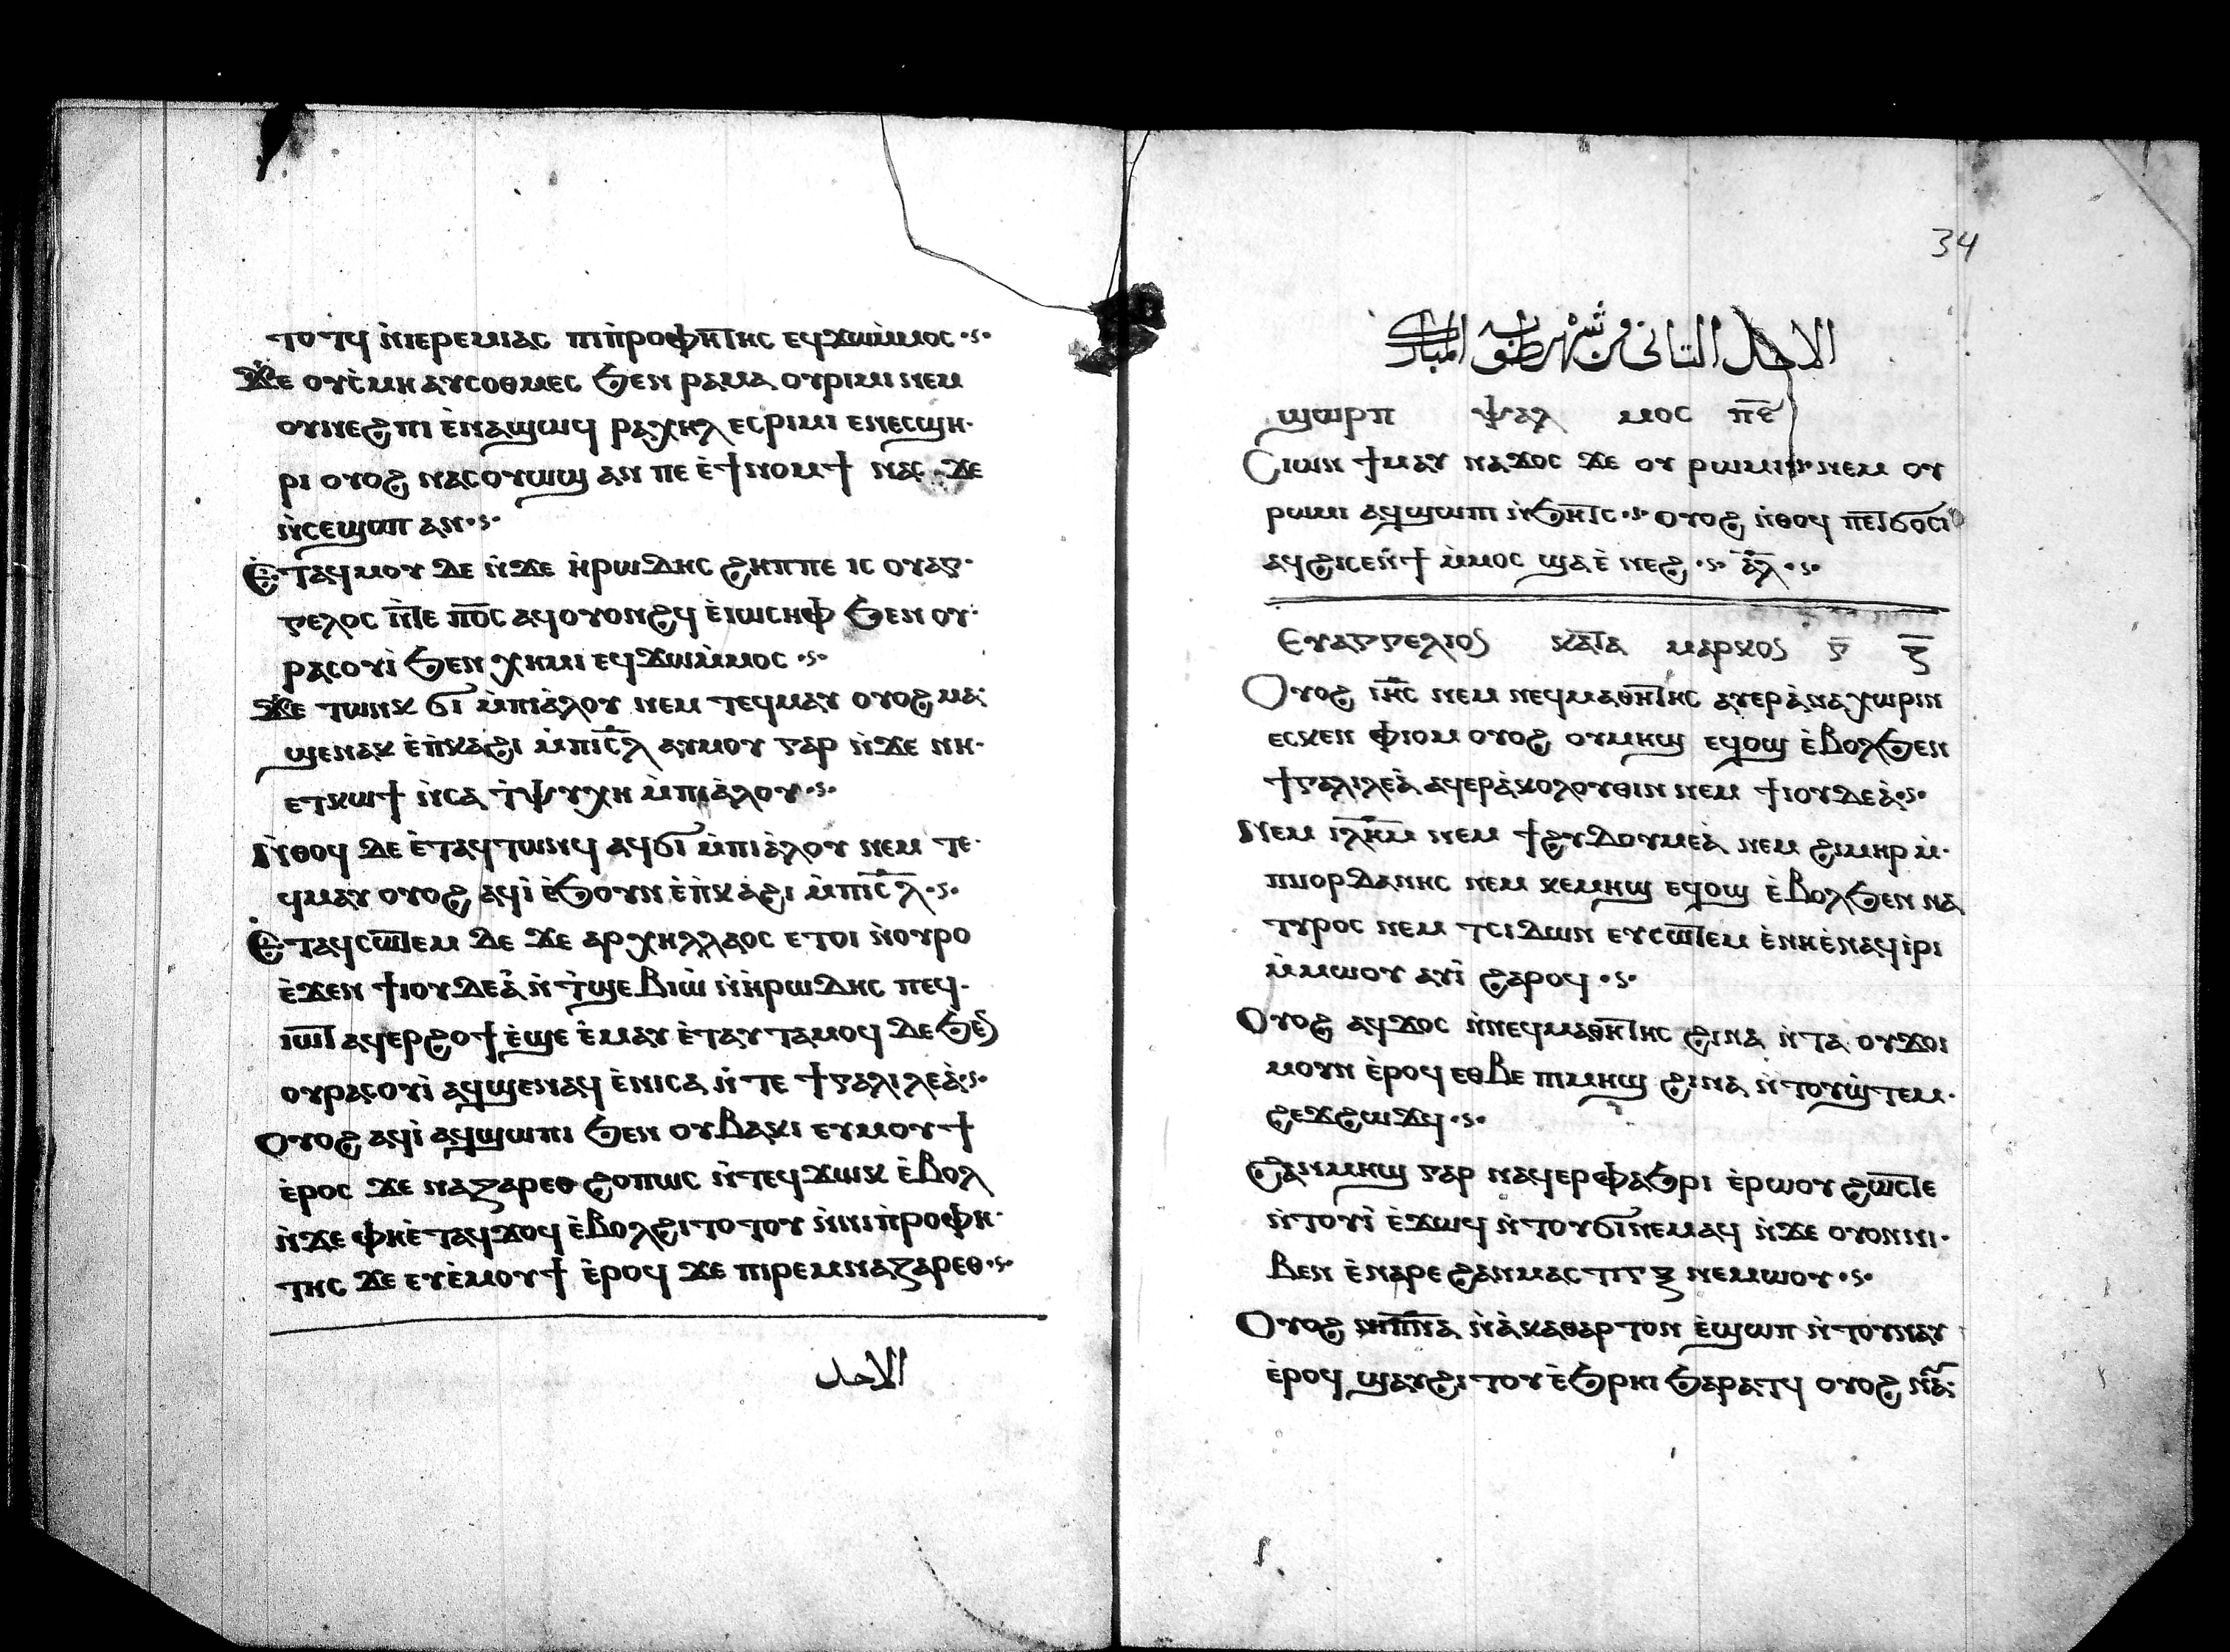 ⲧⲟⲧϥ ⲛ̀ⲓⲉⲣⲉⲙⲓⲁⲥ ⲡⲓⲡ̀ⲣⲟⲫⲏ̅ⲧⲏⲥ ⲉϥϫⲱⲙ̀ⲙⲟⲥ
ϫⲉ ⲟⲩⲥ̀ⲙⲏ ⲁⲩⲥⲟⲑⲙⲉⲥ ϧⲉⲛ ⲣⲁⲙⲁ ⲟⲩⲣⲓⲙⲓ ⲛⲉⲙ
ⲟⲩⲛⲉϩⲡⲓ ⲉ̀ⲛⲁϣⲱϥ ⲣⲁⲭⲏⲗ ⲉⲥⲣⲓⲙⲓ ⲉⲛⲉⲥϣⲏ
ⲣⲓ ⲟⲩⲟϩ ⲛⲁⲥⲟⲩⲱϣ ⲁⲛ ⲡⲉ ⲉ̀ϯⲛⲟⲙϯ ⲛⲁⲥ ϫⲉ
ⲛ̀ⲥⲉϣⲟⲡ ⲁⲛ
ⲉⲧⲁϥⲙⲟⲩ ⲇⲉ ⲛ̀ϫⲉ ⲏ̀ⲣⲱⲇⲏⲥ ϩⲏⲡⲡⲉ ⲓⲥ ⲟⲩⲁⲅ
ⲅⲉⲗⲟⲥ ⲛ̅ⲧⲉ ⲡⲟ̅ⲥ ⲁϥⲟⲩⲟⲛϩϥ ⲉ̀ⲓⲱⲥⲏⲫ ϧⲉⲛ ⲟⲩ
ⲣⲁⲥⲟⲩⲓ̀ ϧⲉⲛ ⲭⲏⲙⲓ ⲉϥϫⲱⲙ̀ⲙⲟⲥ
ϫⲉ ⲧⲱⲛⲕ ϭⲓ ⲙ̀ⲡⲓⲁ̀ⲗⲟⲩ ⲛⲉⲙ ⲧⲉϥⲙⲁⲩ ⲟⲩⲟϩ ⲙⲁ
ϣⲉⲛⲁⲕ ⲉ̀ⲡ̀ⲕⲁϩⲓ ⲙ̀ⲡⲓⲥ̅ⲗ ⲁⲩⲙⲟⲩ ⲅⲁⲣ ⲛ̀ϫⲉ ⲛⲏ
ⲉⲧⲕⲱϯ ⲛ̀ⲥⲁ ϯⲯⲩⲭⲏ ⲙ̀ⲡⲓⲁ̀ⲗⲟⲩ
ⲛ̀ⲑⲟϥ ⲇⲉ ⲉ̀ⲧⲁϥⲧⲱⲛϥ ⲁϥϭⲓ ⲙ̀ⲡⲓⲁ̀ⲗⲟⲩ ⲛⲉⲙ ⲧⲉ
ϥⲙⲁⲩ ⲟⲩⲟϩ ⲁϥⲓ̀ ⲉ̀ϧⲟⲩⲛ ⲉ̀ⲡ̀ⲕⲁϩⲓ ⲙ̀ⲡⲓⲥ̅ⲗ
ⲉⲧⲁϥⲥⲱ̅ⲧⲉⲙ ⲇⲉ ϫⲉ ⲁⲣⲭⲏⲗⲗⲁⲟⲥ ⲉⲧⲟⲓ ⲛ̀ⲟⲩⲣⲟ
ⲉ̀ϫⲉⲛ ϯⲓⲟⲩⲇⲉⲁ̀ ⲛ̀ⲧ̀ϣⲉⲃⲓⲱ̀ ⲛ̀ⲏ̀ⲣⲱⲇⲏⲥ ⲡⲉϥ
ⲓⲱ̅ⲧ ⲁϥⲉⲣϩⲟϯ ⲉ̀ϣⲉ ⲉ̀ⲙⲁⲩ ⲉ̀ⲧⲁⲩⲧⲁⲙⲟϥ ⲇⲉ ϧⲉⲛ
ⲟⲩⲣⲁⲥⲟⲩⲓ̀ ⲁϥϣⲉⲛⲁϥ ⲉ̀ⲛⲓⲥⲁ ⲛ̀ⲧⲉ ϯⲅⲁⲗⲓⲗⲉⲁ̀
ⲟⲩⲟϩ ⲁϥⲓ̀ ⲁϥϣⲱⲡⲓ ϧⲉⲛ ⲟⲩⲃⲁⲕⲓ ⲉⲩⲙⲟⲩϯ
ⲉ̀ⲣⲟⲥ ϫⲉ ⲛⲁⲍⲁⲣⲉⲑ ϩⲟⲡⲱⲥ ⲛ̀ⲧⲉϥϫⲱⲕ ⲉ̀ⲃⲟⲗ
ⲛ̀ϫⲉ ⲫⲏⲉ̀ⲧⲁϥϫⲟϥ ⲉ̀ⲃⲟⲗϩⲓⲧⲟⲧⲟⲩ ⲛ̀ⲛⲓⲡ̀ⲣⲟⲫⲏ
ⲧⲏⲥ ϫⲉ ⲉⲩⲉ̀ⲙⲟⲩϯ ⲉ̀ⲣⲟϥ ϫⲉ ⲡⲓⲣⲉⲙⲛⲁⲍⲁⲣⲉⲑ
الاحد
34
الاحد الثانى من شهر طوبه المبارك
ϣⲱⲣⲡ ⲯⲁⲗ ⲙⲟⲥ ⲡ̅ⲋ̅
ⲥⲓⲱⲛ ϯⲙⲁⲩ ⲛⲁϫⲟⲥ ϫⲉ ⲟⲩ ⲣⲱⲙⲓ ⲛⲉⲙ ⲟⲩ
ⲣⲱⲙⲓ ⲁϥϣⲱⲡⲓ ⲛ̀ϧⲏ̅ⲧⲥ ⲟⲩⲟϩ ⲛ̀ⲑⲟϥ ⲡⲉ̅ⲧϭⲟⲥⲓ
ⲁϥϩⲓⲥⲉⲛϯ ⲙ̀ⲙⲟⲥ ϣⲁⲉ̀ ⲛⲉϩ ⲁ̅ⲗ
ⲉⲩⲁⲅⲅⲉⲗⲓⲟⲛ ⲕⲁ̅ⲧⲁ ⲙⲁⲣⲕⲟⲛ ⲅ̅ ⲍ̅
ⲟⲩⲟϩ ⲓⲏ̅ⲥ ⲛⲉⲙ ⲛⲉϥⲙⲁⲑⲏ̅ⲧⲏⲥ ⲁⲩⲉⲣⲁ̀ⲛⲁⲭⲱⲣⲓⲛ
ⲉⲥⲕⲉⲛ ⲫⲓⲟⲙ ⲟⲩⲟϩ ⲟⲩⲙⲏϣ ⲉϥⲟϣ ⲉ̀ⲃⲟⲗϧⲉⲛ
ϯⲅⲁⲗⲓⲗⲉⲁ̀ ⲁϥⲉⲣⲁ̀ⲕⲟⲗⲟⲩⲑⲓⲛ ⲛⲉⲙ ϯⲓⲟⲩⲇⲉⲁ̀
ⲛⲉⲙ ⲓⲗⲏ̅ⲙ ⲛⲉⲙ ϯϩⲩⲇⲟⲩⲙⲉⲁ̀ ⲛⲉⲙ ϩⲓⲙⲏⲣ ⲙ̀
ⲡⲓⲟⲣⲇⲁⲛⲏⲥ ⲛⲉⲙ ⲕⲉⲙⲏϣ ⲉϥⲟϣ ⲉ̀ⲃⲟⲗϧⲉⲛ ⲛⲁ
ⲧⲩⲣⲟⲥ ⲛⲉⲙ ⲧⲥⲓⲇⲱⲛ ⲉⲩⲥⲱ̅ⲧⲉⲙ ⲉ̀ⲛⲏⲉ̀ⲛⲁϥⲓ̀ⲣⲓ
ⲙ̀ⲙⲱⲟⲩ ⲁⲩⲓ̀ ϩⲁⲣⲟϥ
ⲟⲩⲟϩ ⲁϥϫⲟⲥ ⲛ̀ⲛⲉϥⲙⲁⲑⲏ̅ⲧⲏⲥ ϩⲓⲛⲁ ⲛ̀ⲧⲁ ⲟⲩϫⲟⲓ
ⲙⲟⲩⲛ ⲉ̀ⲣⲟϥ ⲉⲑⲃⲉ ⲡⲓⲙⲏϣ ϩⲓⲛⲁ ⲛ̀ⲧⲟⲩϣ̀ⲧⲉⲙ
ϩⲉϫϩⲱϫϥ
ϩⲁⲛⲙⲏϣ ⲅⲁⲣ ⲛⲁϥⲉⲣⲫⲁϧⲣⲓ ⲉ̀ⲣⲱⲟⲩ ϩⲱ̅ⲥⲧⲉ
ⲛ̀ⲧⲟⲩⲓ̀ ⲉ̀ϫⲱϥ ⲛ̀ⲧⲟⲩϭⲓⲛⲉⲙⲁϥ ⲛ̀ϫⲉ ⲟⲩⲟⲛⲛⲓ
ⲃⲉⲛ ⲉ̀ⲛⲁⲣⲉ ϩⲁⲛⲙⲁⲥⲧⲓⲅⲝ ⲛⲉⲙⲱⲟⲩ
ⲟⲩⲟϩ ⲛⲓⲡ̅ⲛⲁ ⲛ̀ⲁ̀ⲕⲁⲑⲁⲣⲧⲟⲛ ⲉ̀ϣⲱⲡ ⲛ̀ⲧⲟⲩⲛⲁⲩ
ⲉ̀ⲣⲟϥ ϣⲁⲩϩⲓⲧⲟⲩ ⲉ̀ϧⲣⲏⲓ ϧⲁⲣⲁⲧϥ ⲟⲩⲟϩ ⲛⲁ